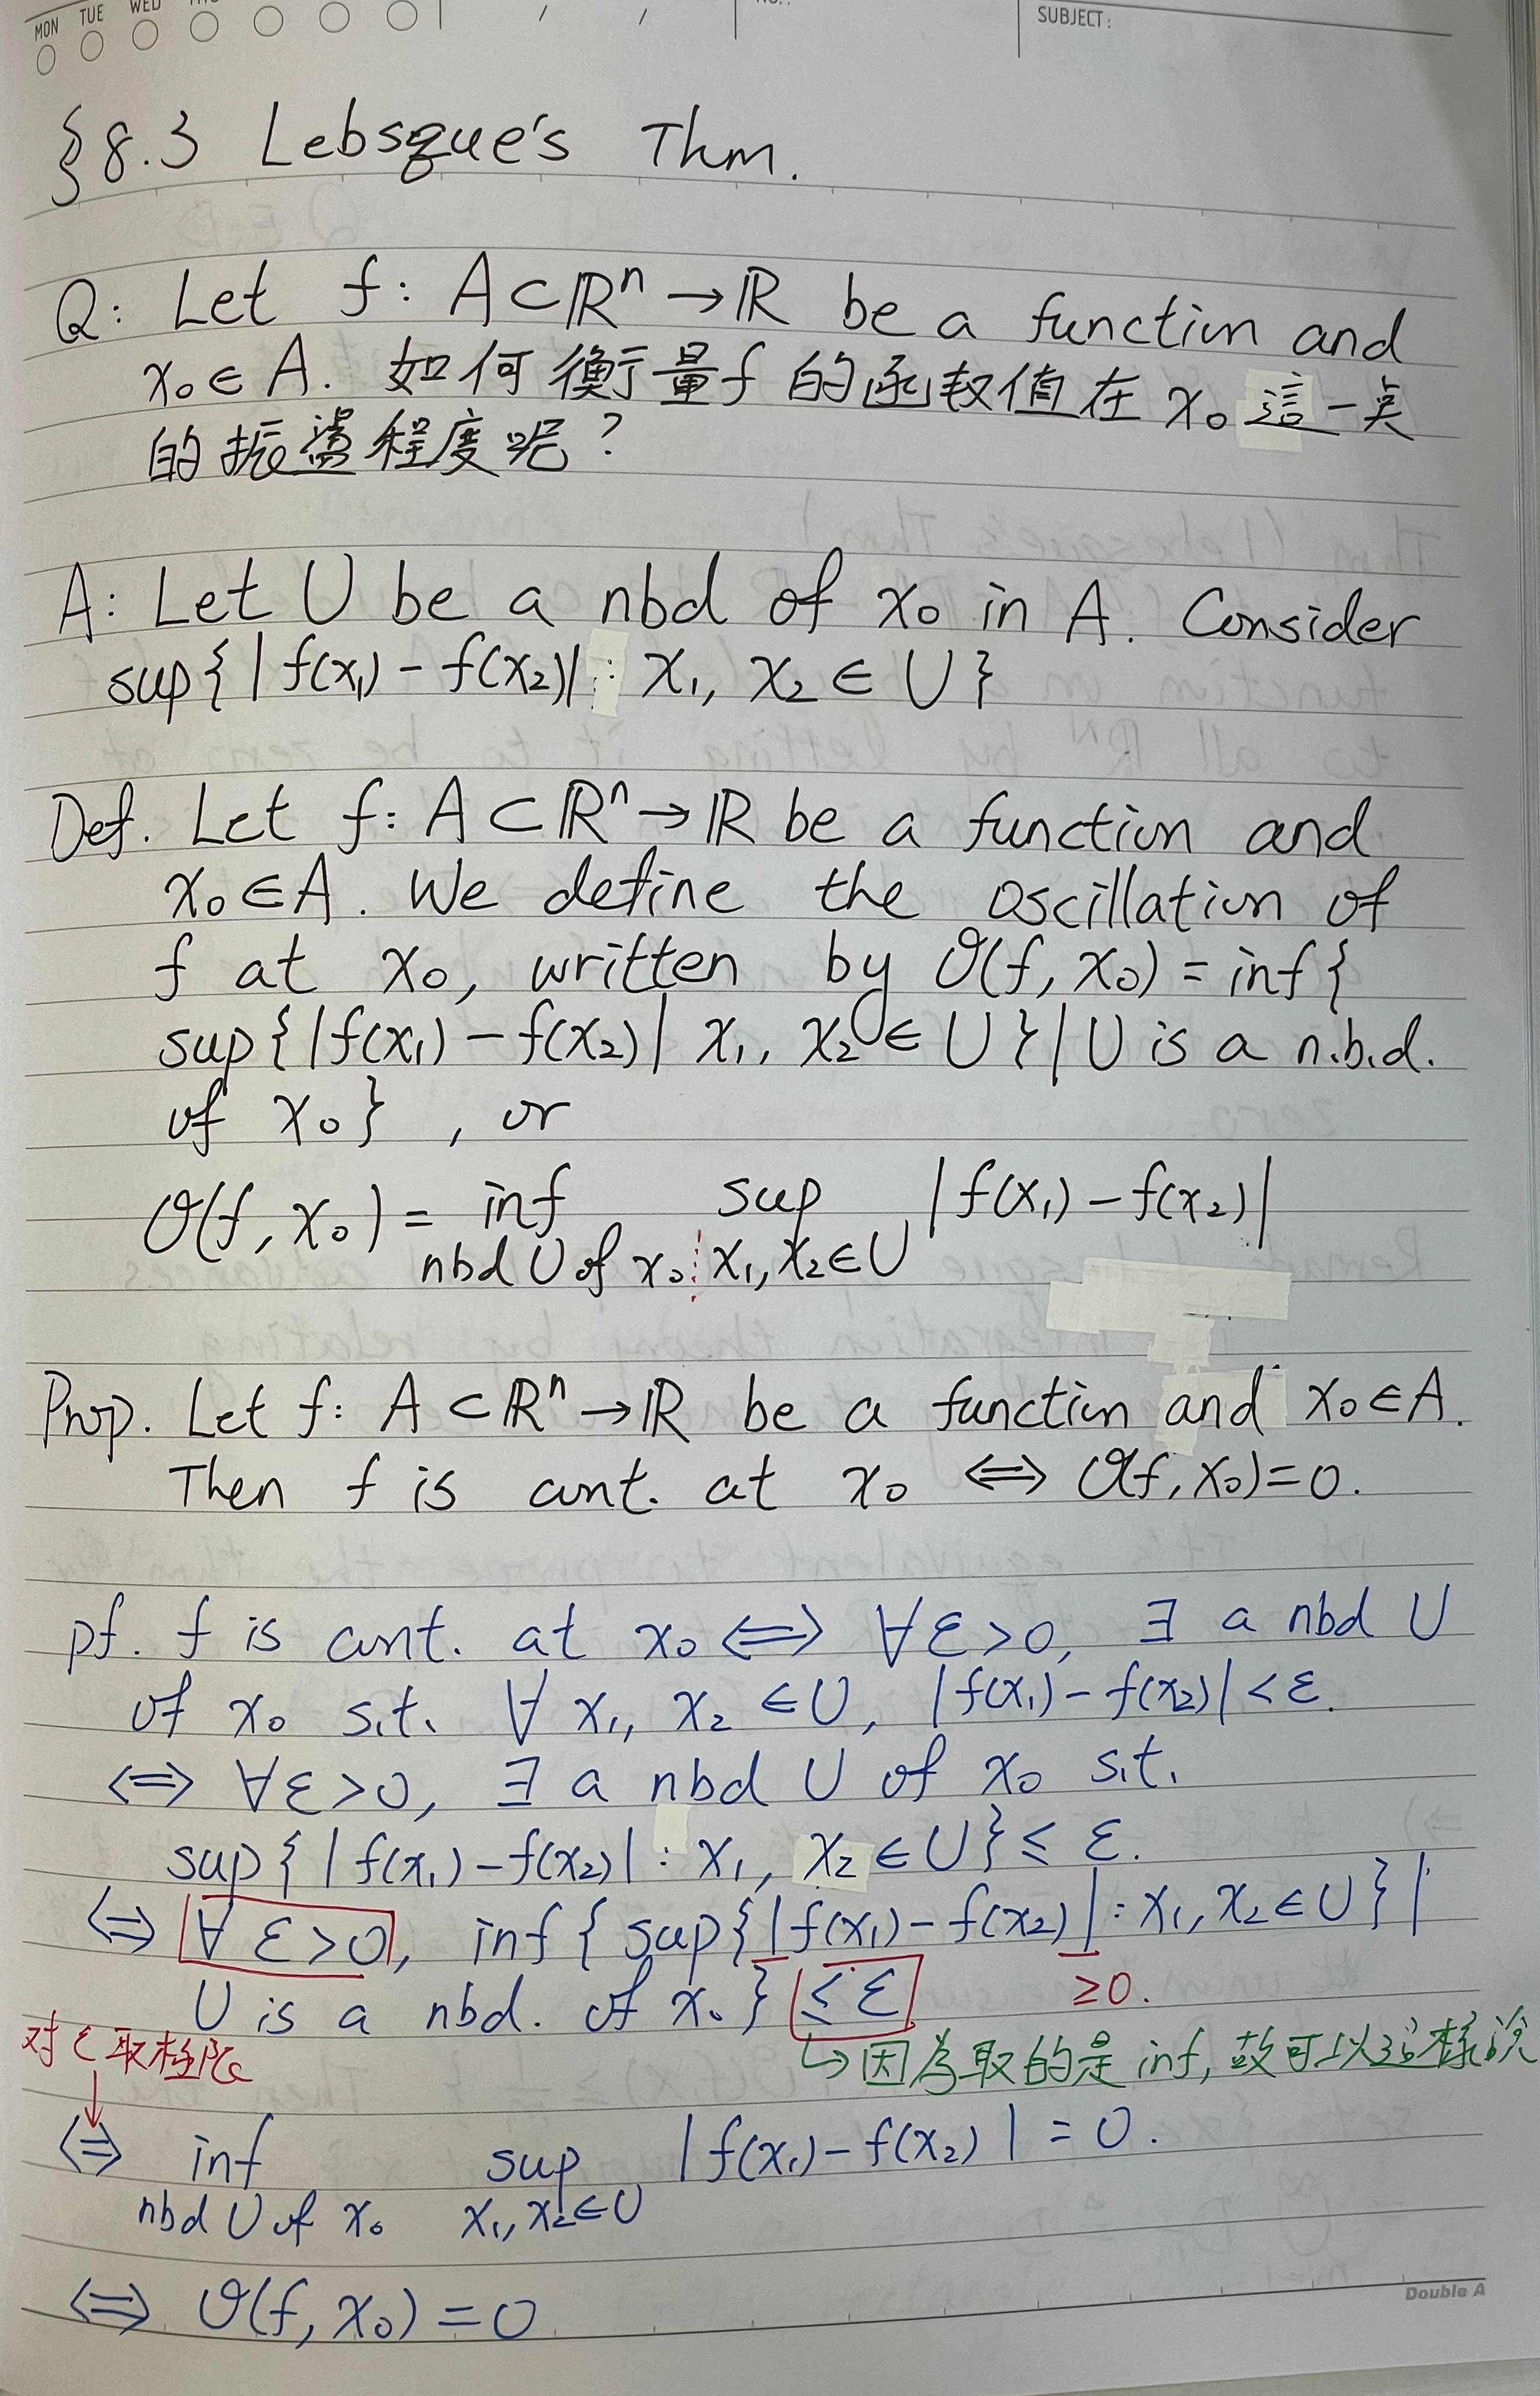 MON TUE WED
SUBJECT:
§8.3 Lebsque's Thm.
Q: Let f: A⊂ℝⁿ→ℝ be a function and
x₀∈A. 如何衡量f的函数值在x₀這一奌
的振盪程度呢?
A: Let U be a nbd of x₀ in A. Consider
sup{|f(x₁)-f(x₂)| : x₁, x₂ ∈ U}
Def. Let f: A⊂ℝⁿ→ℝ be a function and
x₀∈A. We define the oscillation of
f at x₀, written by O(f, x₀) = inf{
sup{|f(x₁)-f(x₂)| x₁, x₂ ∈ U}|U is a n.b.d.
of x₀} , or
O(f, x₀) = inf sup |f(x₁)-f(x₂)|
nbd U of x₀ x₁, x₂∈U
Prop. Let f: A⊂ℝⁿ→ℝ be a function and x₀∈A.
Then f is cont. at x₀ ⟺ O(f, x₀)=0.
pf. f is cont. at x₀ ⟺ ∀ε>0, ∃ a nbd U
of x₀ s.t. ∀ x₁, x₂ ∈U, |f(x₁)-f(x₂)|<ε.
⟺ ∀ε>0, ∃ a nbd U of x₀ s.t.
sup{|f(x₁)-f(x₂)| : x₁, x₂∈U}≤ ε.
⟺ ∀ ε>0, inf{sup{|f(x₁)-f(x₂)|:x₁,x₂∈U}|
U is a nbd. of x₀} ≤ε ≥0.
对ε取极限
↳因為取的是inf, 故可以這樣說
⟺ inf sup |f(x₁)-f(x₂)| = 0.
nbd U of x₀ x₁, x₂∈U
⟺ O(f, x₀) = 0
Double A